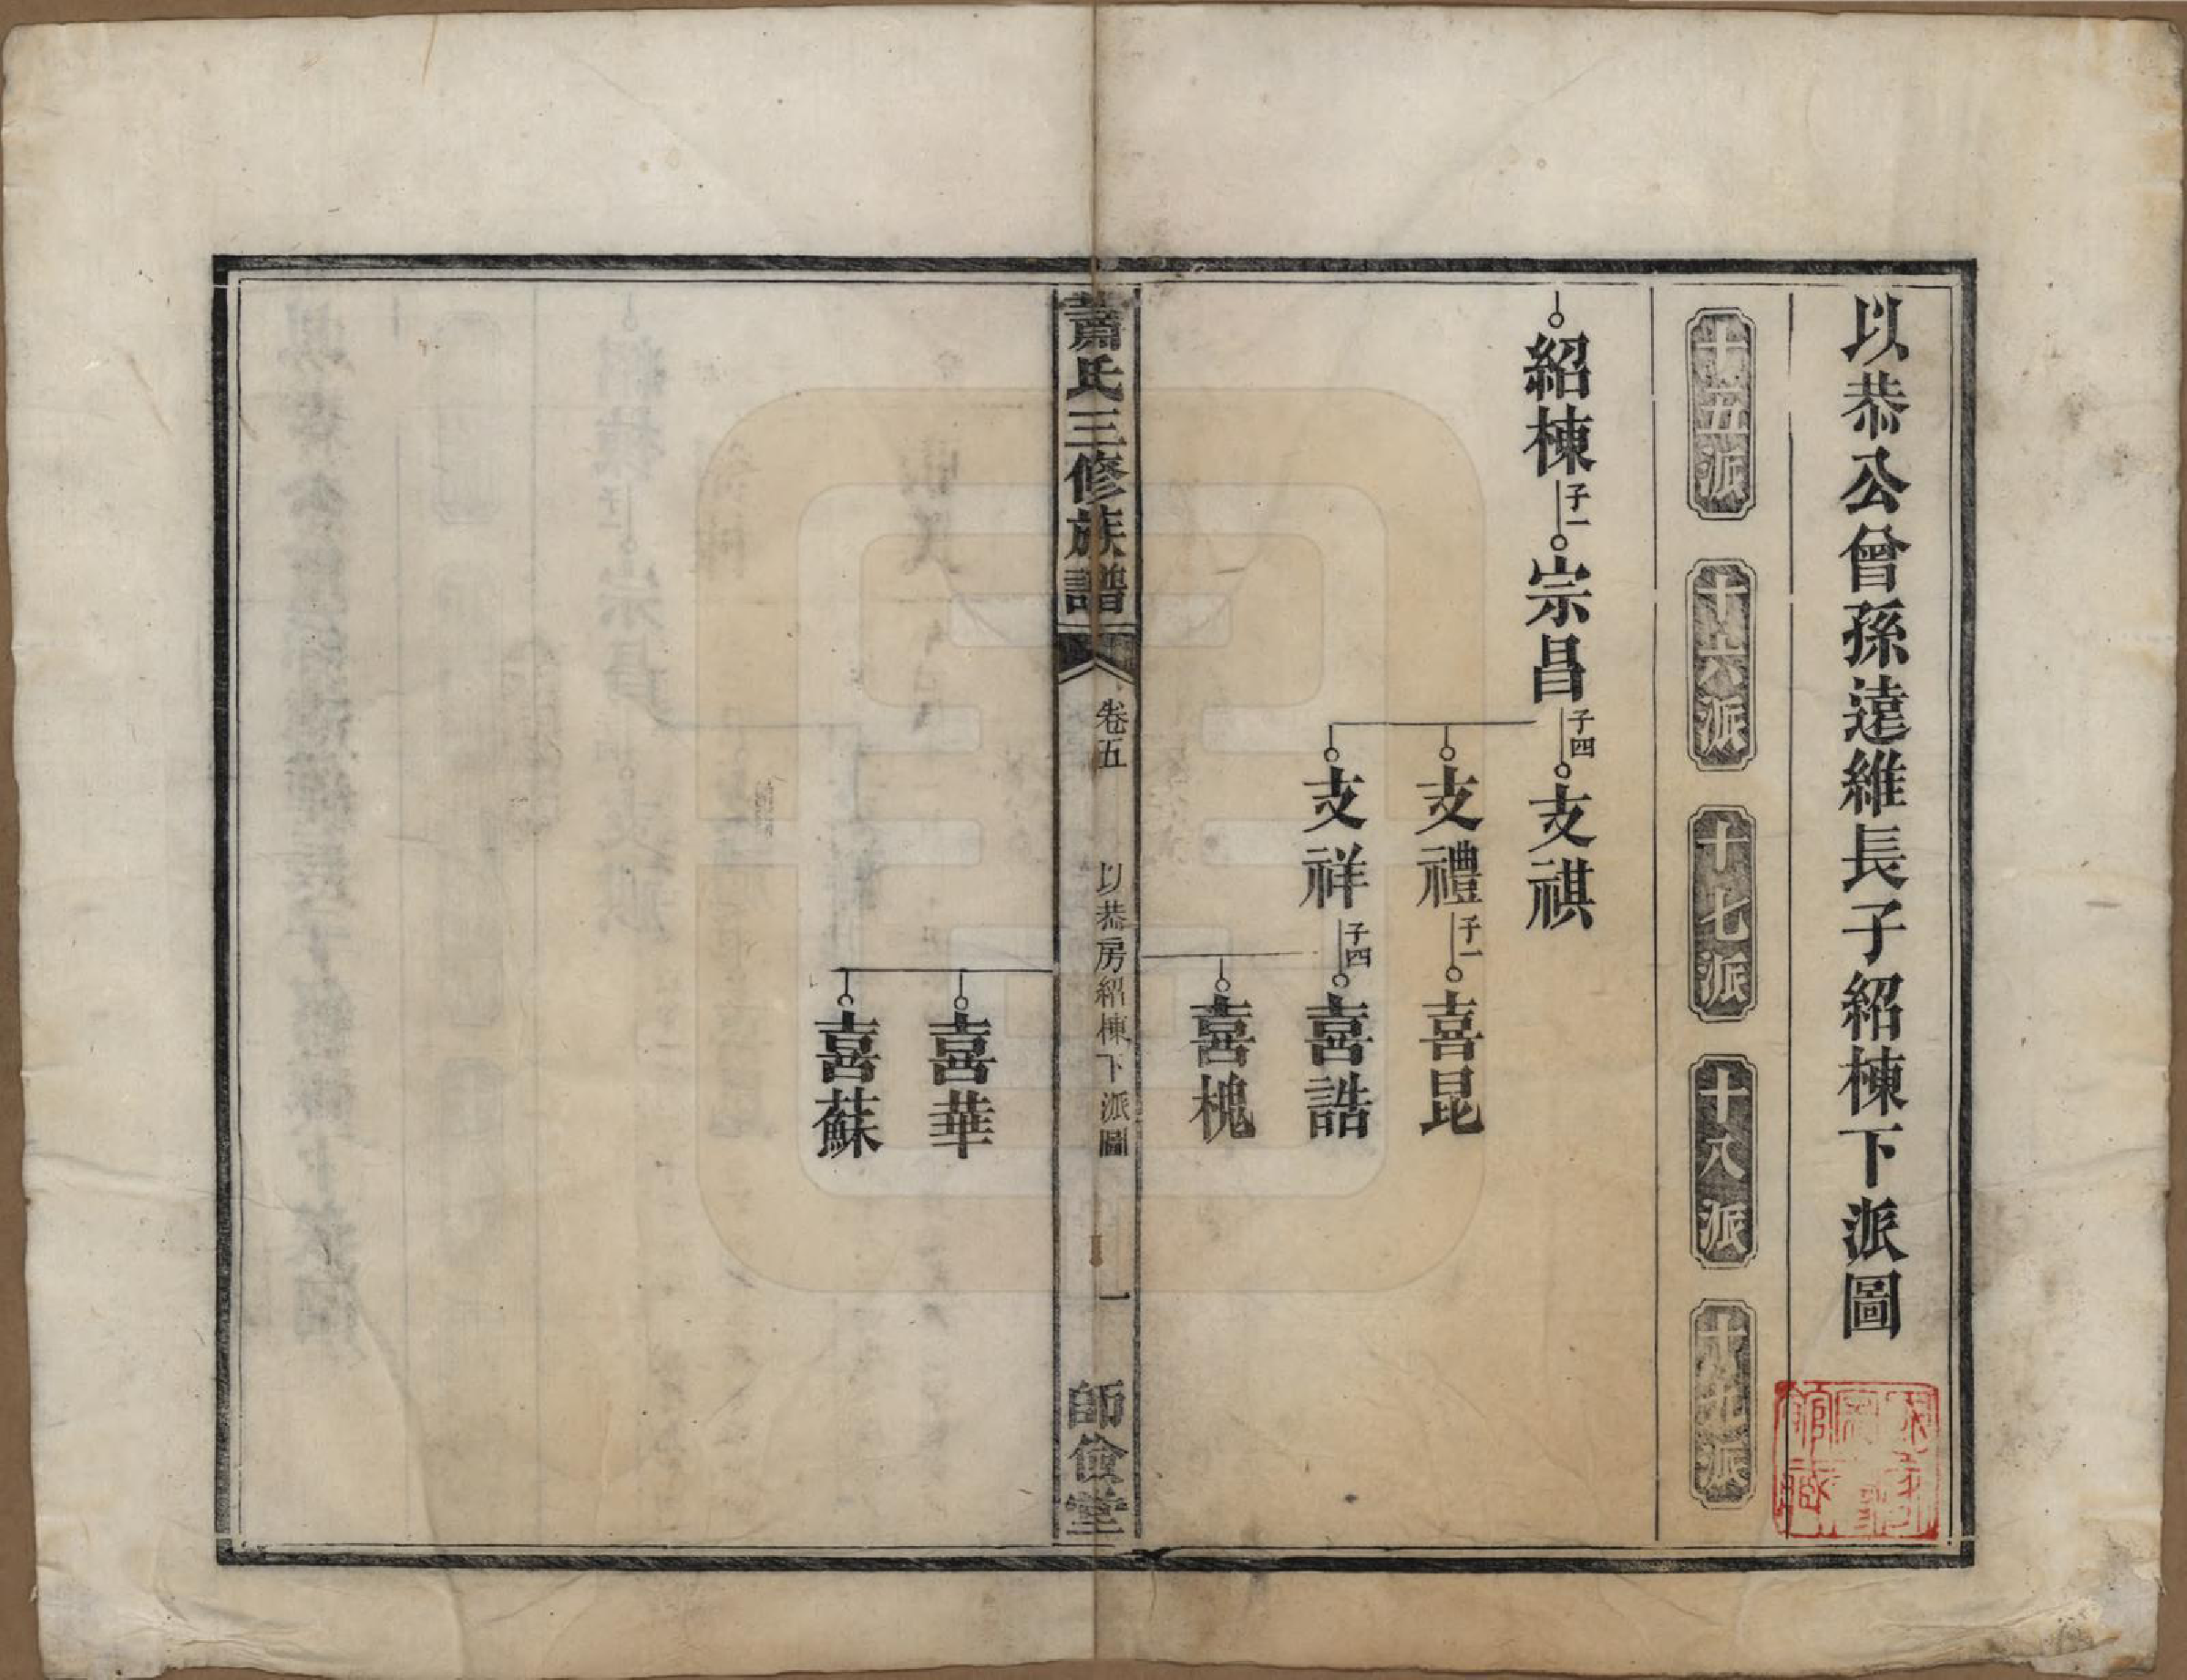 以恭公曾孫遠維長子紹棟下派圖
十五派
十六派
十七派
十八派
十九派
紹棟 子一 宗昌 子四 支祺
支禮 子一 喜昆
支祥 子四 喜誥
喜槐
蕭氏三修族譜 卷五 以恭房紹棟下派圖 一 師儉堂
喜華
喜蘇